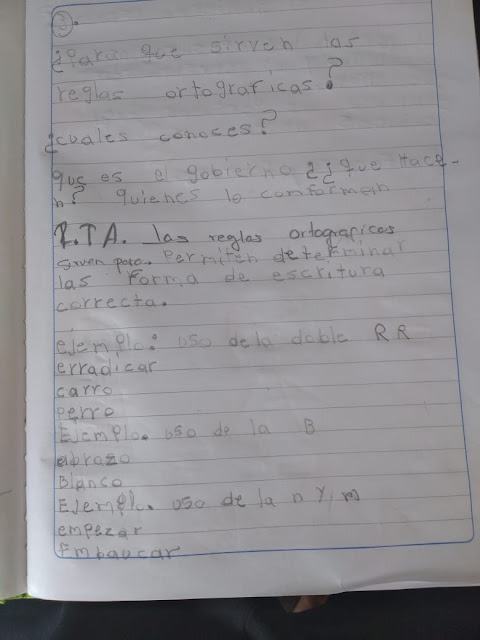 3.
¿Para que sirven las
reglas ortograficas?
¿cuales conoces?
que es el gobierno ¿¿que Hace-
n? quienes lo conforman
R.T.A. las reglas ortograficas
sirven para. Permiten determinar
las forma de escritura
correcta.
ejemplo: uso de la doble RR
erradicar
carro
perro
Ejemplo. uso de la B
abrazo
Blanco
Ejemplo. uso de la n y m
empezar
Embaucar